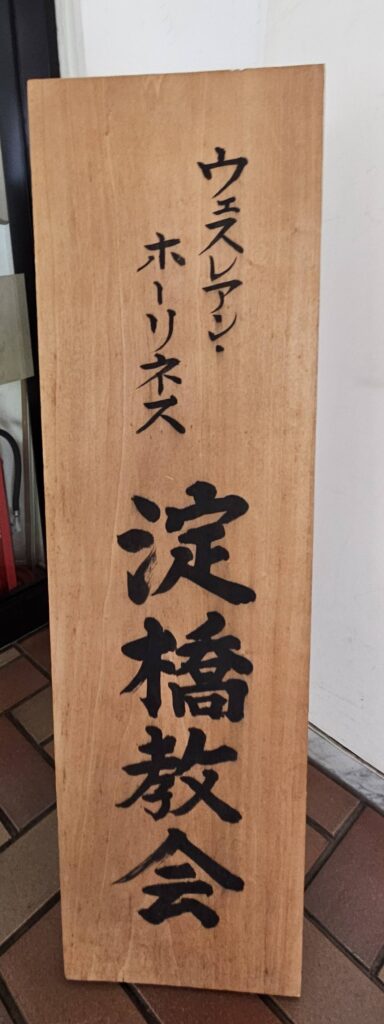 ウェスレアン・
ホーリネス
淀橋教会